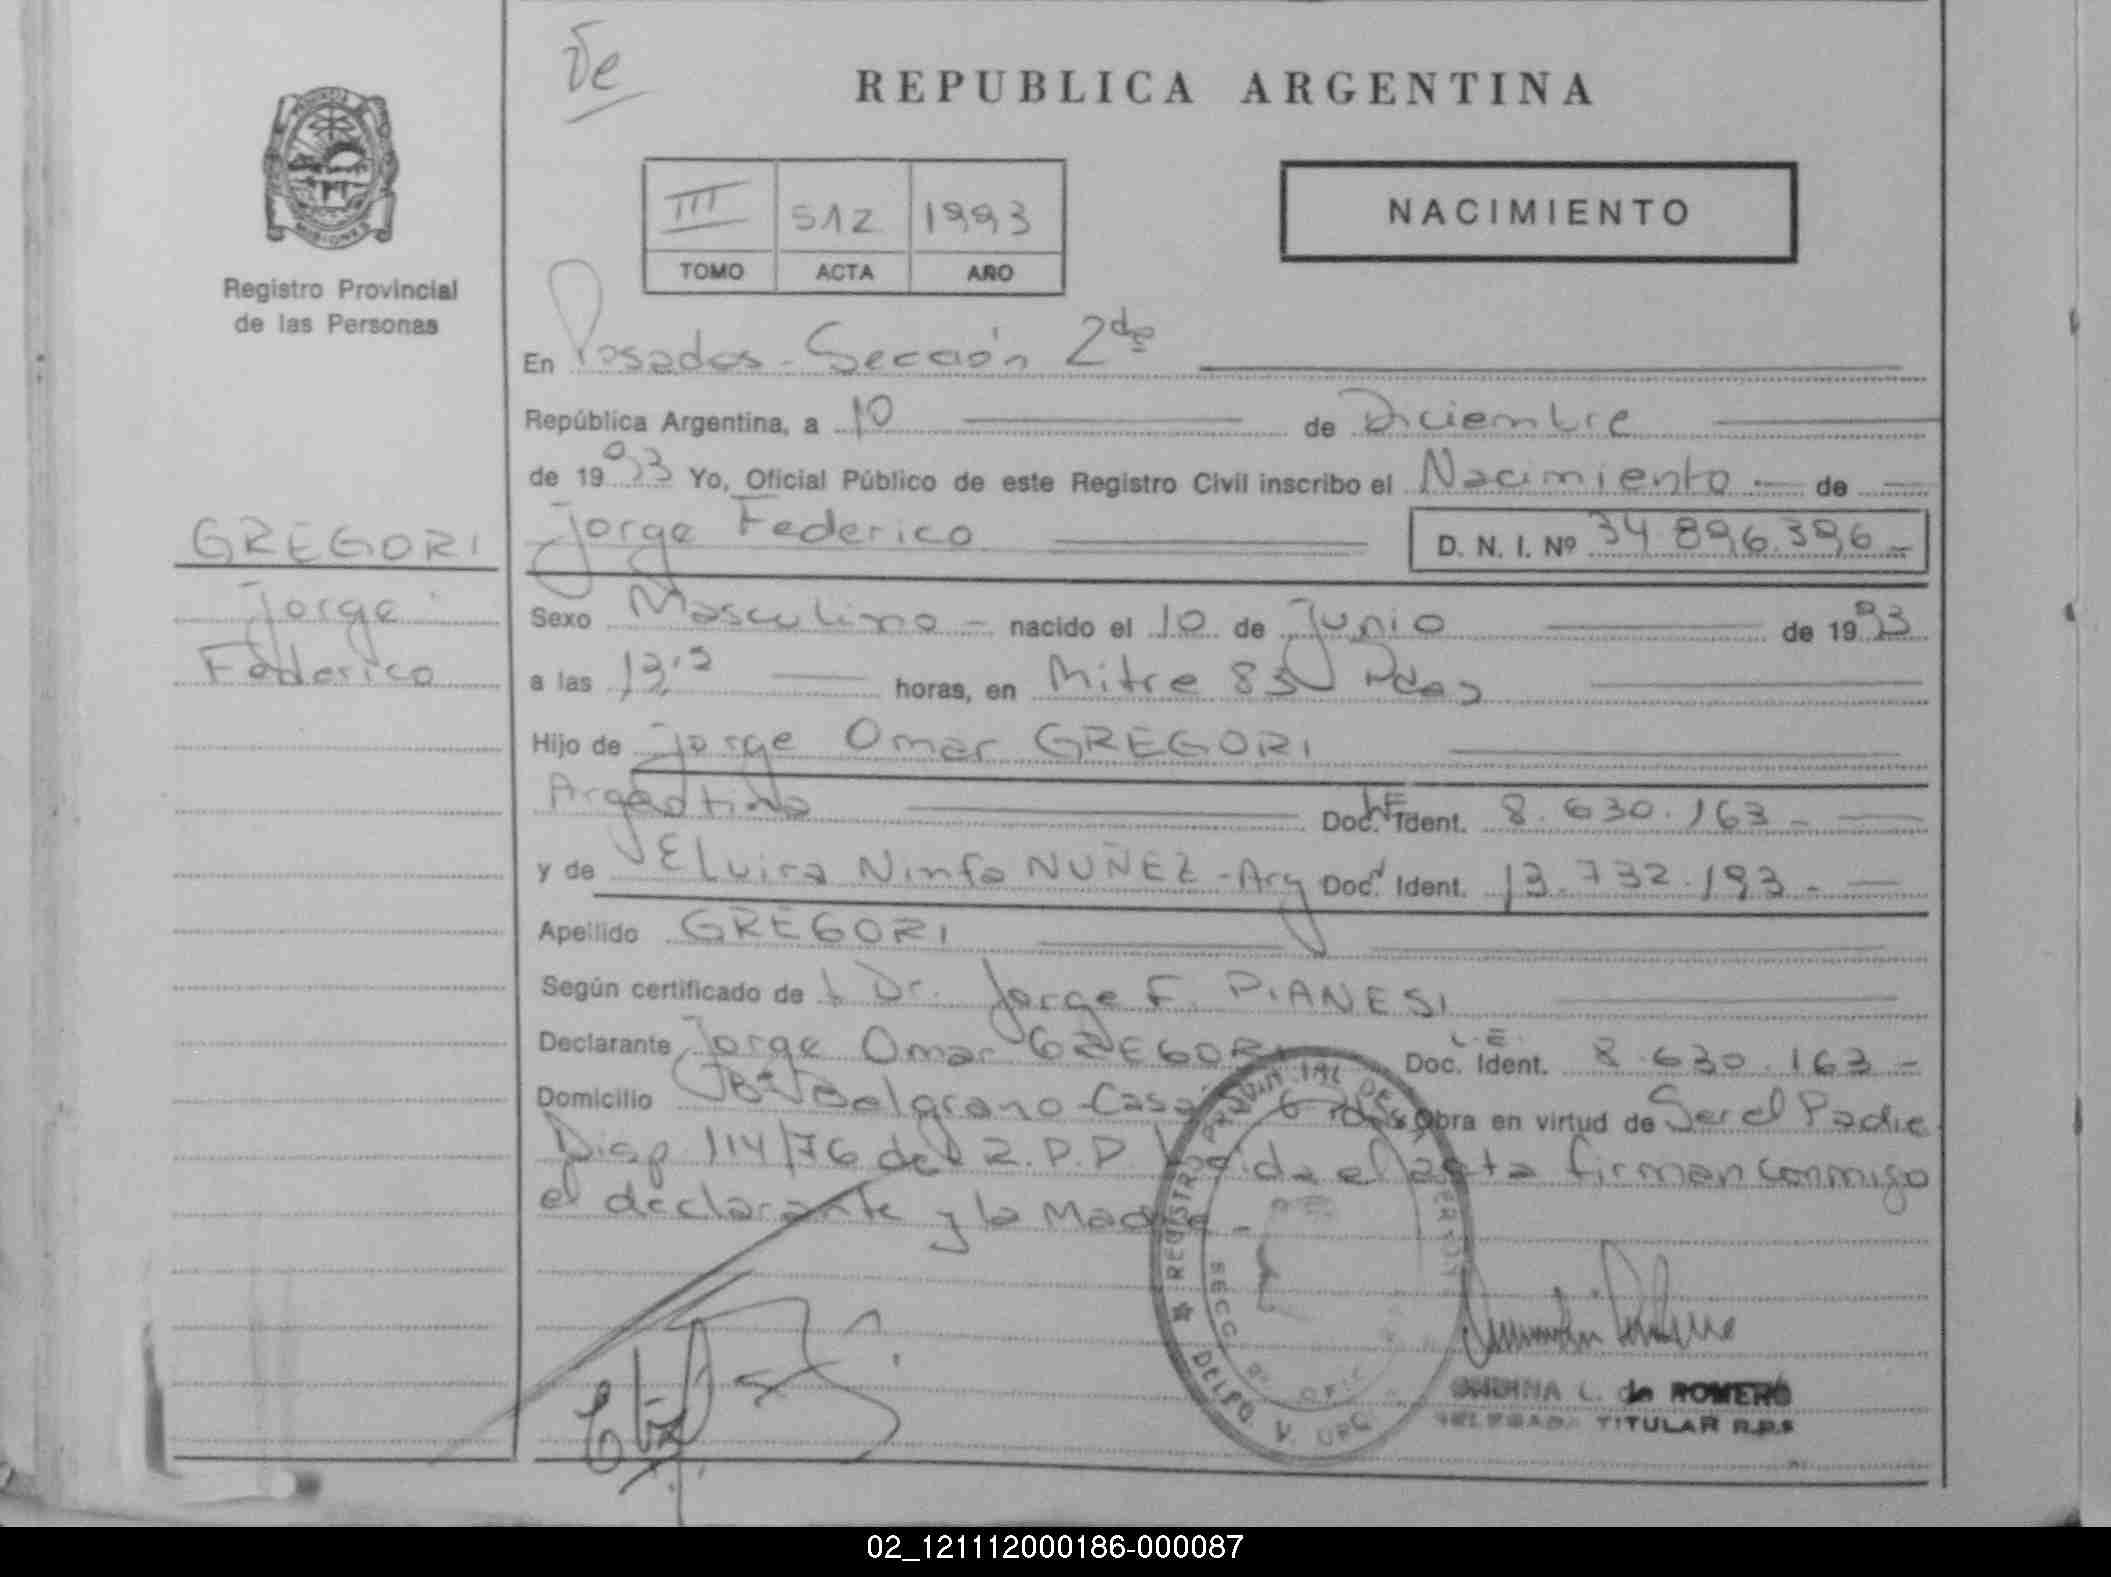 De
REPUBLICA ARGENTINA
III 512 1993
TOMO ACTA AÑO
NACIMIENTO
Registro Provincial
de las Personas
En Posadas - Sección 2da
República Argentina, a 10 de Diciembre
de 1993 Yo, Oficial Público de este Registro Civil inscribo el Nacimiento de
Jorge Federico D. N. I. Nº 34.896.396
GREGORI
Jorge
Federico
Sexo Masculino - nacido el 10 de Junio de 1993
a las horas, en Mitre Pdas
Hijo de Jorge Omar GREGORI
Argentino Doc. Ident. L.E. 8.630.163 -
y de Elvira Ninfa NUÑEZ - Arg Doc. Ident. 13.732.193 -
Apellido GREGORI
Según certificado de Dr. Jorge F. PIANESI
Declarante Jorge Omar GREGORI L.E. Doc. Ident. 8.630.163 -
Domicilio Bº Belgrano - Casa Obra en virtud de Ser el Padre
Disp 114/76 del R.P.P. Leída el acta firman conmigo
el declarante y la Madre -
REGISTRO PROVINCIAL DE
SECC
L. de ROMERO
DELEGADA TITULAR R.P.S
02_121112000186-000087